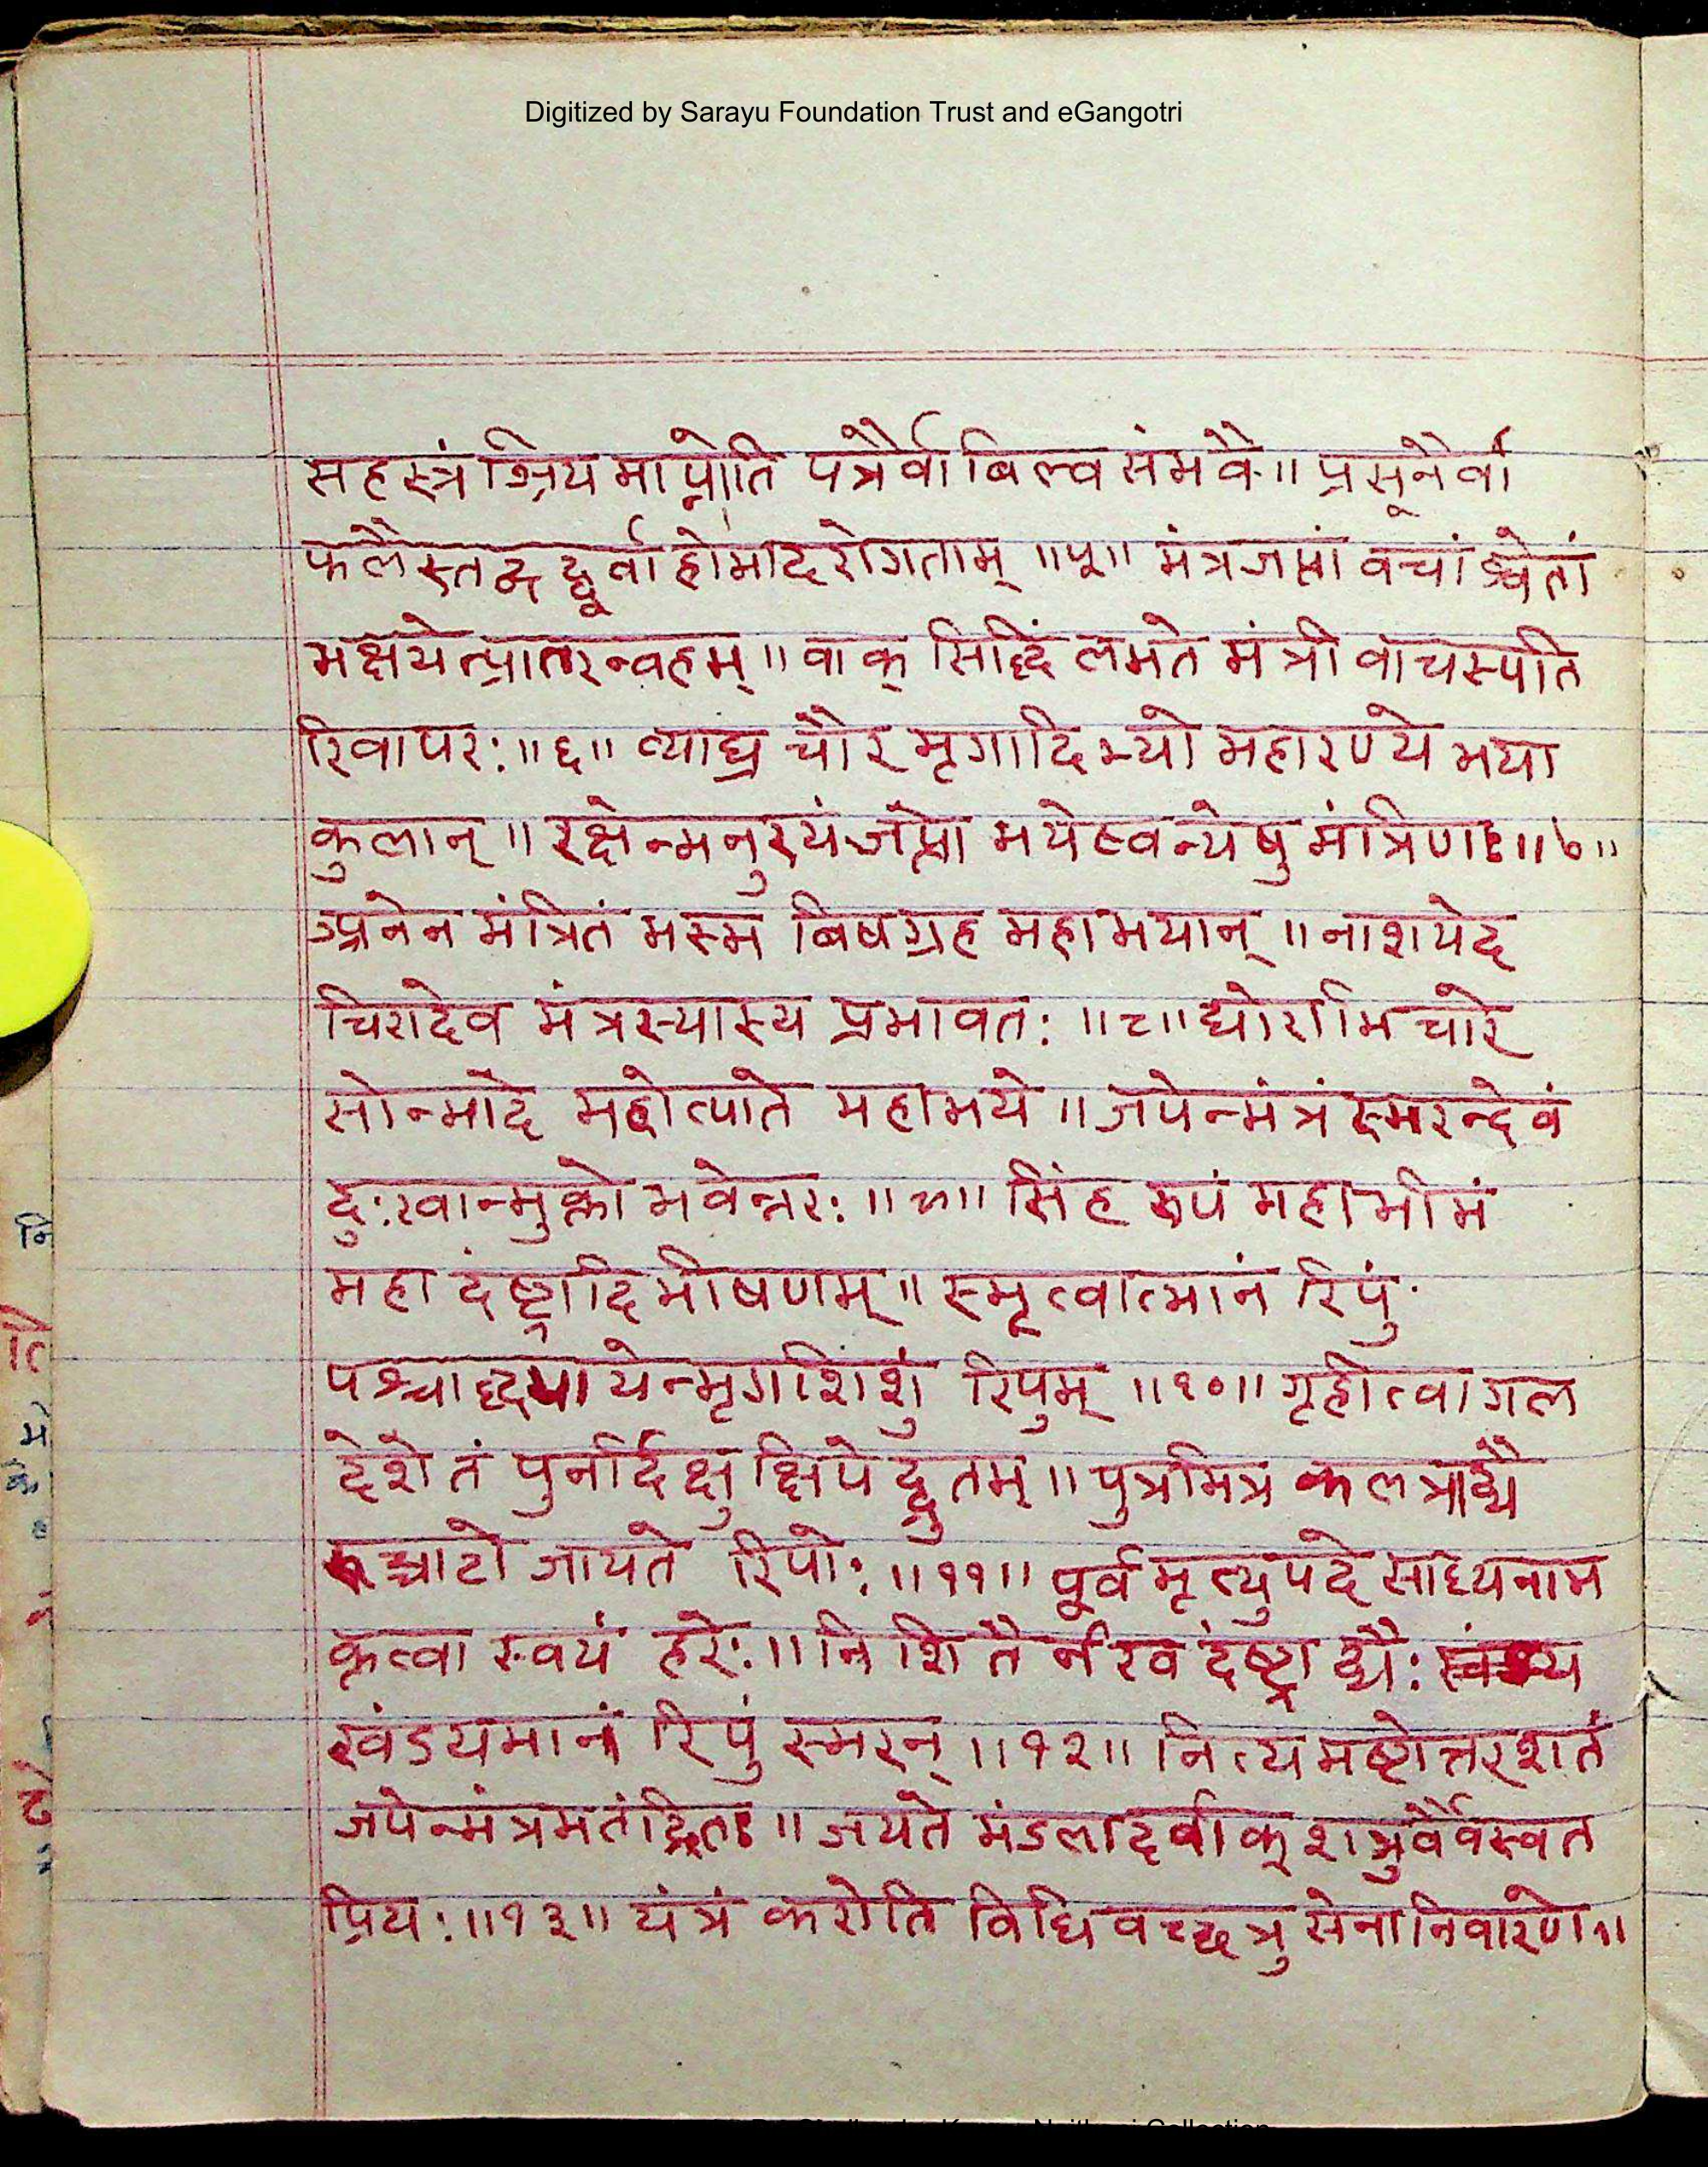 Digitized by Sarayu Foundation Trust and eGangotri
सहस्त्रं श्रियमाप्नोति पत्रैर्वा बिल्व संभवैः॥ प्रसूनैर्वा
फलैस्तद्वद् दूर्वा होमादरोगताम् ॥५॥ मंत्रजप्तां वचां श्वेतां
भक्षयेत्प्रातरन्वहम्॥ वाक् सिद्धिं लभते मंत्री वाचस्पति
रिवापरः॥६॥ व्याघ्र चौर मृगादिभ्यो महारण्ये भया
कुलान्॥ रक्षेन्मनुरयं जप्तो भयेष्वन्येषु मंत्रिणः॥७॥
अनेन मंत्रितं भस्म बिषग्रह महाभयान्॥ नाशयेद
चिरादेव मंत्रस्यास्य प्रभावतः ॥८॥ घोराभिचारे
सोन्मादे महोत्पाते महाभये॥ जपेन्मंत्रं स्मरन्देवं
दुःखान्मुक्तो भवेन्नरः॥९॥ सिंह रूपं महाभीमं
महा दंष्ट्रादि भीषणम्॥ स्मृत्वात्मानं रिपुं
पश्चाद्ध्यायेन्मृगशिशुं रिपुम् ॥१०॥ गृहीत्वा गल
देशे तं पुनर्दिक्षु क्षिपेद्द्रुतम्॥ पुत्रमित्र कलत्राद्यै
रूच्चाटो जायते रिपोः॥११॥ पूर्व मृत्युपदे साध्यनाम
कृत्वा स्वयं हरेः॥ निशितै र्नख दंष्ट्राद्यैः
खंडयमानं रिपुं स्मरन्॥१२॥ नित्यमष्टोत्तरशतं
जपेन्मंत्रमतंद्रितः॥ जयते मंडलादर्वाक् शत्रुर्वैवस्वत
प्रियः॥१३॥ यंत्रं करोति विधिवच्छत्रु सेनानिवारणे॥